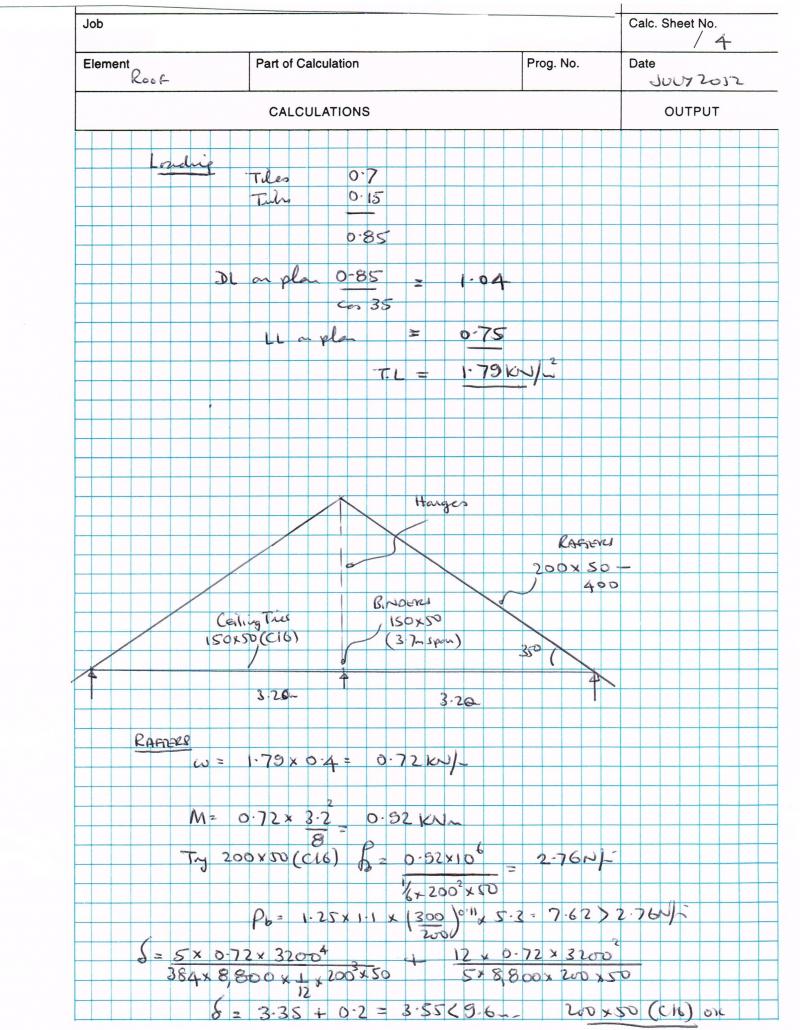 Job
Calc. Sheet No.
/ 4
Element
Roof
Part of Calculation
Prog. No.
Date
JULY 2012
CALCULATIONS
OUTPUT
Loading
Tiles 0.7
0.15
0.85
DL on plan 0.85 / cos 35 = 1.04
LL on plan = 0.75
T.L = 1.79 kN/m²
Hangers
RAFTERS
200 x 50 –
400
Ceiling Ties
150x50 (C16)
BINDERS
150x50
(3.7m span)
35°
3.20m
3.20
RAFTERS
ω = 1.79 x 0.4 = 0.72 kN/m
M = 0.72 x 3.2² / 8 = 0.92 kNm
Try 200x50 (C16) fb = 0.92x10⁶ / 1/6 x 200² x 50 = 2.76 N/
Pb = 1.25 x 1.1 x (300/200)^0.11 x 5.3 = 7.62 > 2.76 N/
δ = 5 x 0.72 x 3200⁴ / 384 x 8,800 x 1/12 x 200³ x 50 + 12 x 0.72 x 3200² / 5 x 8,800 x 200 x 50
δ = 3.35 + 0.2 = 3.55 < 9.6mm 200x50 (C16) OK